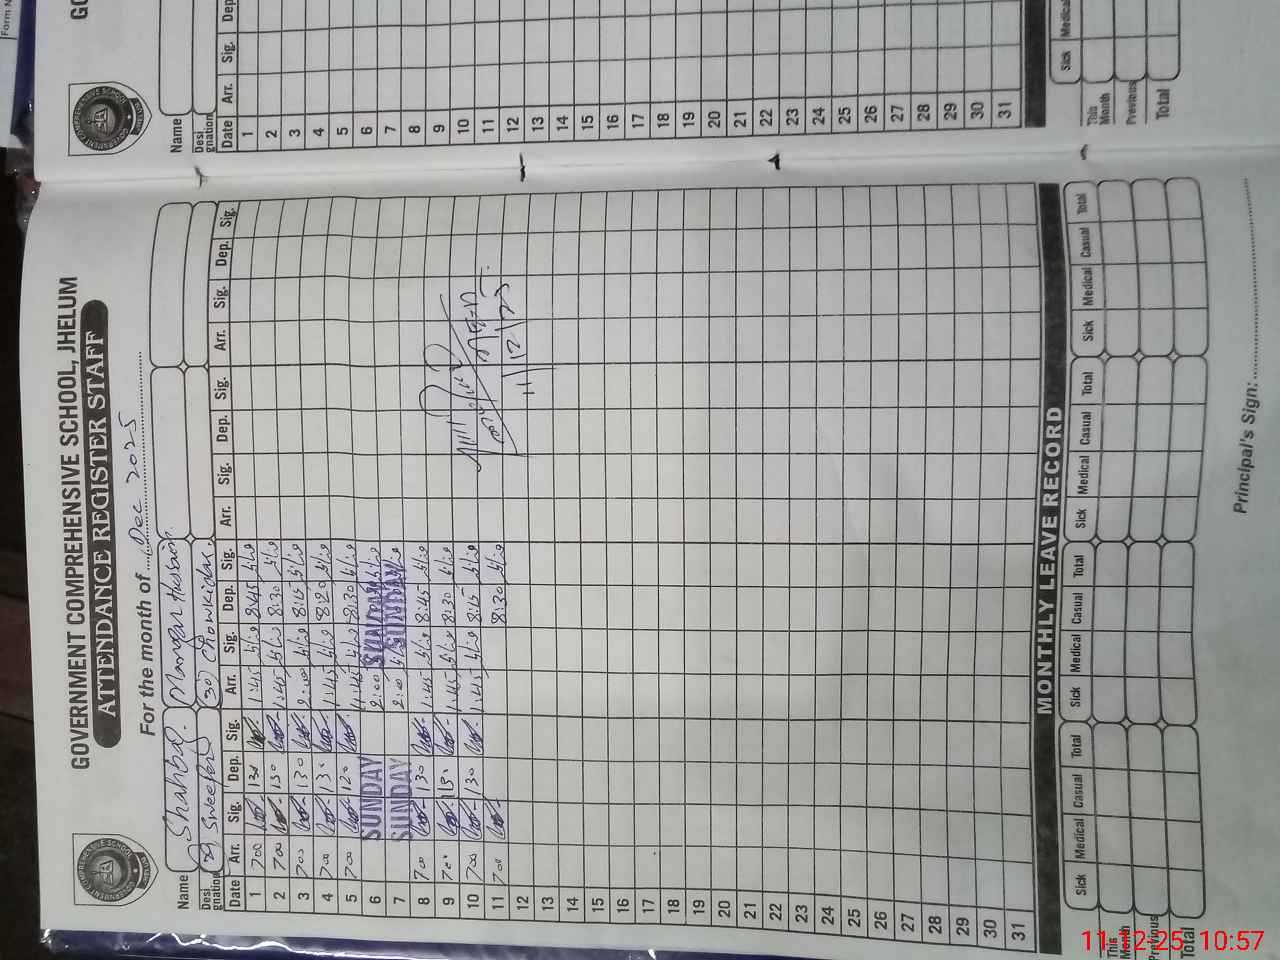 GOVERNMENT COMPREHENSIVE SCHOOL, JHELUM
ATTENDANCE REGISTER STAFF
For the month of Dec 2025
Name Shahbaz. Manzar Hussain.
Designation (29) Sweeper (30) Chowkidar.
Date Arr. Sig. Dep. Sig. Arr. Sig. Dep. Sig. Arr. Sig. Dep. Sig. Arr. Sig. Dep. Sig.
1 700 130 1:45 8:45
2 700 130 1:45 8:30
3 700 130 2:00 8:15
4 700 130 1:45 8:20
5 700 120 1:45 8:30
6 SUNDAY 2:00 SUNDAY
7 SUNDAY 2:00 SUNDAY
8 700 130 1:45 8:45
9 700 130 1:45 8:30
10 700 130 1:45 8:15
11 700 8:30
11/12/25
12
13
14
15
16
17
18
19
20
21
22
23
24
25
26
27
28
29
30
31
MONTHLY LEAVE RECORD
Sick Medical Casual Total Sick Medical Casual Total Sick Medical Casual Total Sick Medical Casual Total
This Month
Previous
Total
Principal's Sign:
GO
Form N
Name
Designation
Date Arr. Sig. Dep.
1
2
3
4
5
6
7
8
9
10
11
12
13
14
15
16
17
18
19
20
21
22
23
24
25
26
27
28
29
30
31
Sick Medical
This Month
Previous
Total
11-12-25 10:57